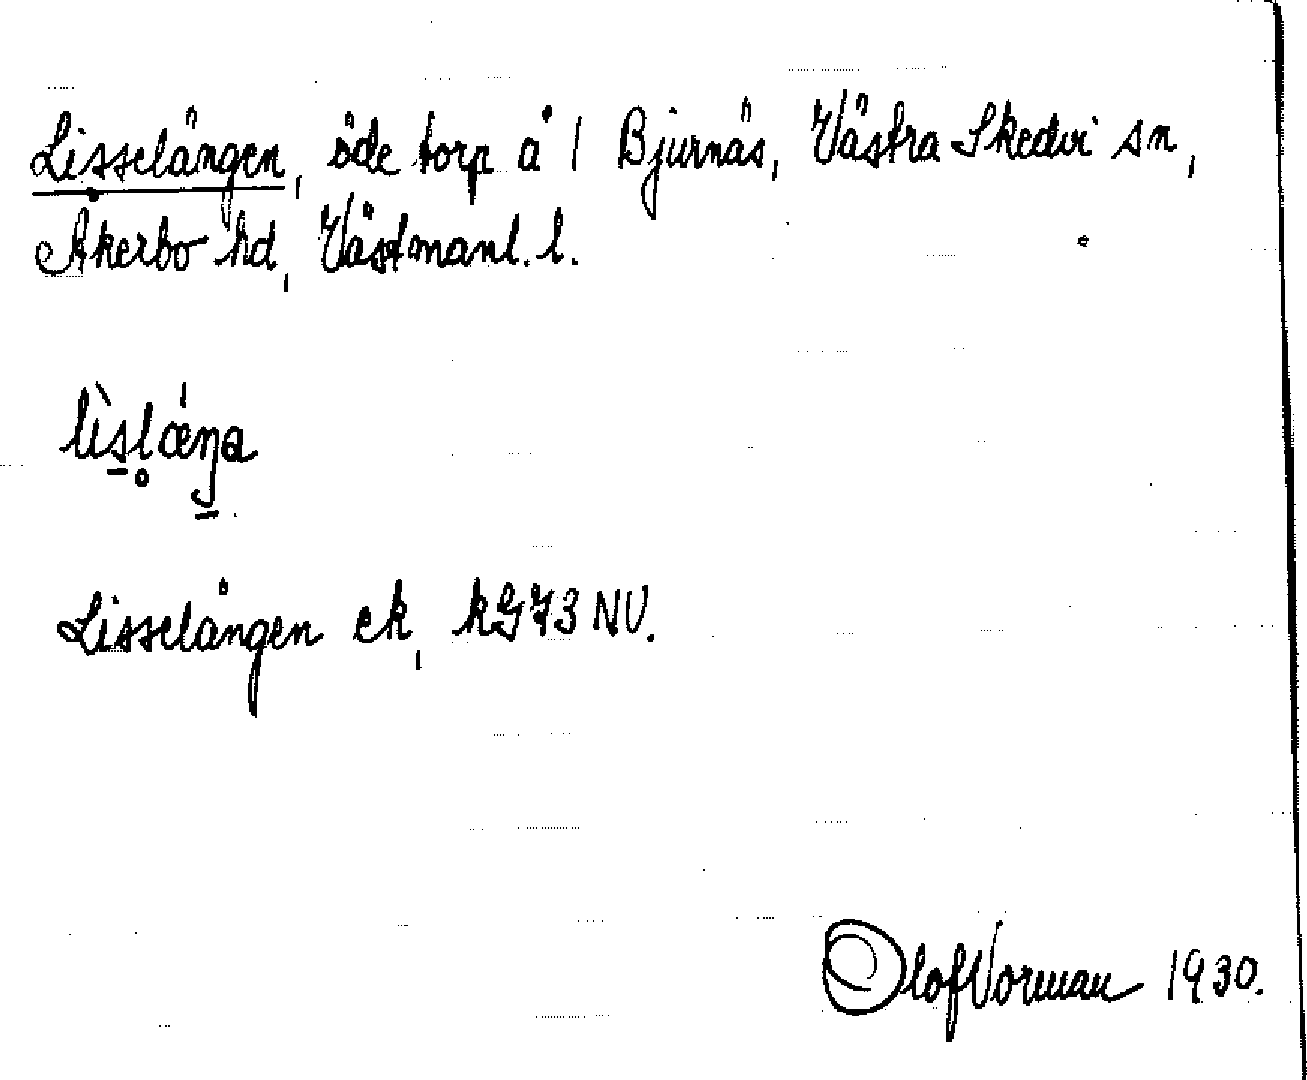 Lisselängen, öde torp å 1 Bjurnäs, Västra Skedvi sn,
Åkerbo hd, Västmanl. l.
Lisselängen ek, kG73 NV.
Olof Vorman 1930.